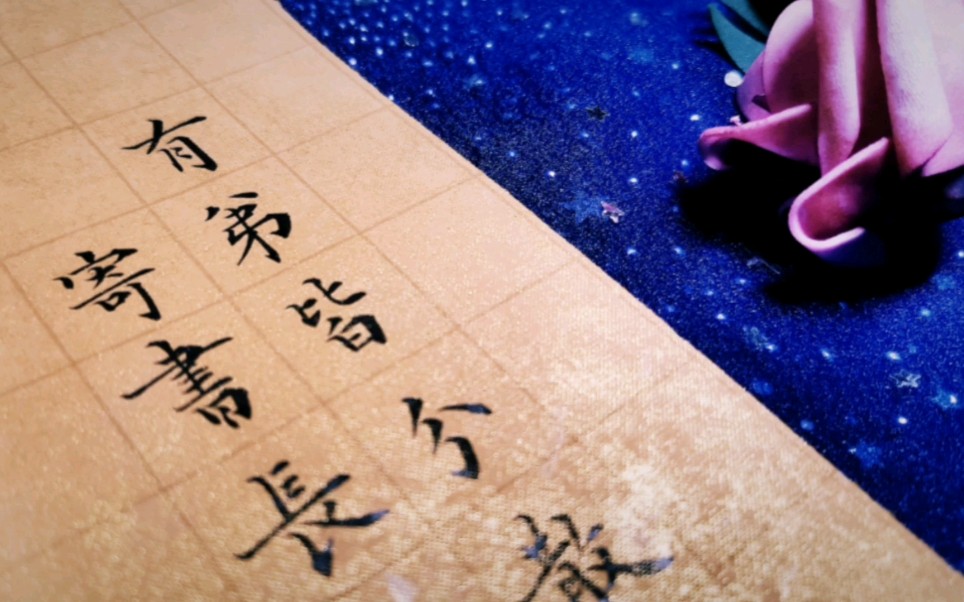 有弟皆分散
寄書長